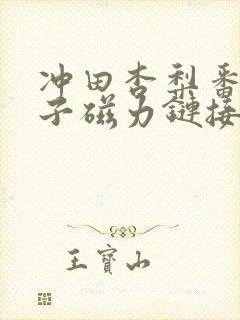 冲田杏梨番
子磁力鏈接
王寶山